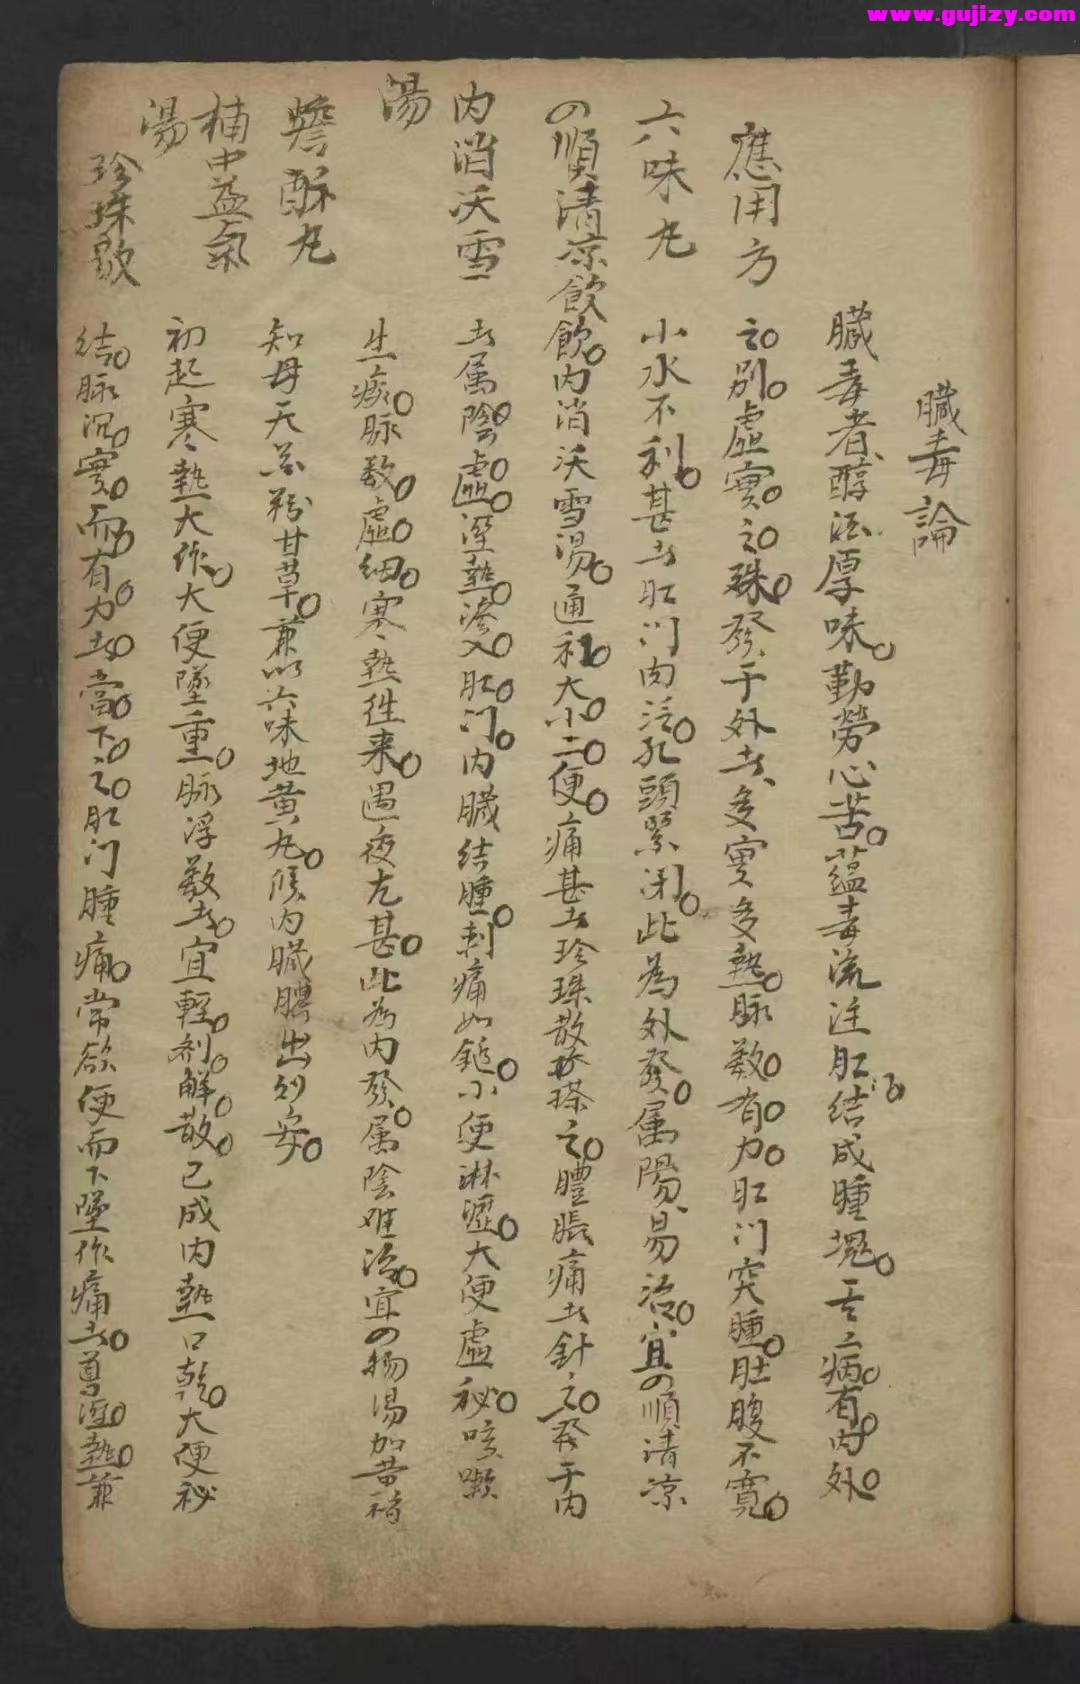 www.gujizy.com
臟毒論
臟毒者醇酒厚味勤勞心苦蘊毒流注肛結成腫塊其病有內外
之別虛實之殊發于外者多實多熱脉數有力肛门突腫肚腹不寬
小水不利甚者肛门肉泛孔頭緊闭此為外發属陽易治宜四順清凉
飲内消沃雪湯通利大小二便痛甚者珍珠散搽之腫脹痛者針之發于内
者属陰虛湿熱滲入肛门内臟結腫刺痛如錐小便淋澀大便虛秘咳嗽
生痰脉數虛细寒熱徃来遇夜尤甚此為内發属陰难治宜四物湯加黄
知母天花粉甘草兼以六味地黄丸候内臟膿出则安
初起寒熱大作大便墜重脉浮數者宜輕剂解散已成内熱口乾大便秘
結脉沉實而有力者當下之肛门腫痛常欲便而下墜作痛者導湿熱兼
應用方
六味丸
四順清凉飲
内消沃雪
湯
蟾酥丸
補中益氣
湯
珍珠散